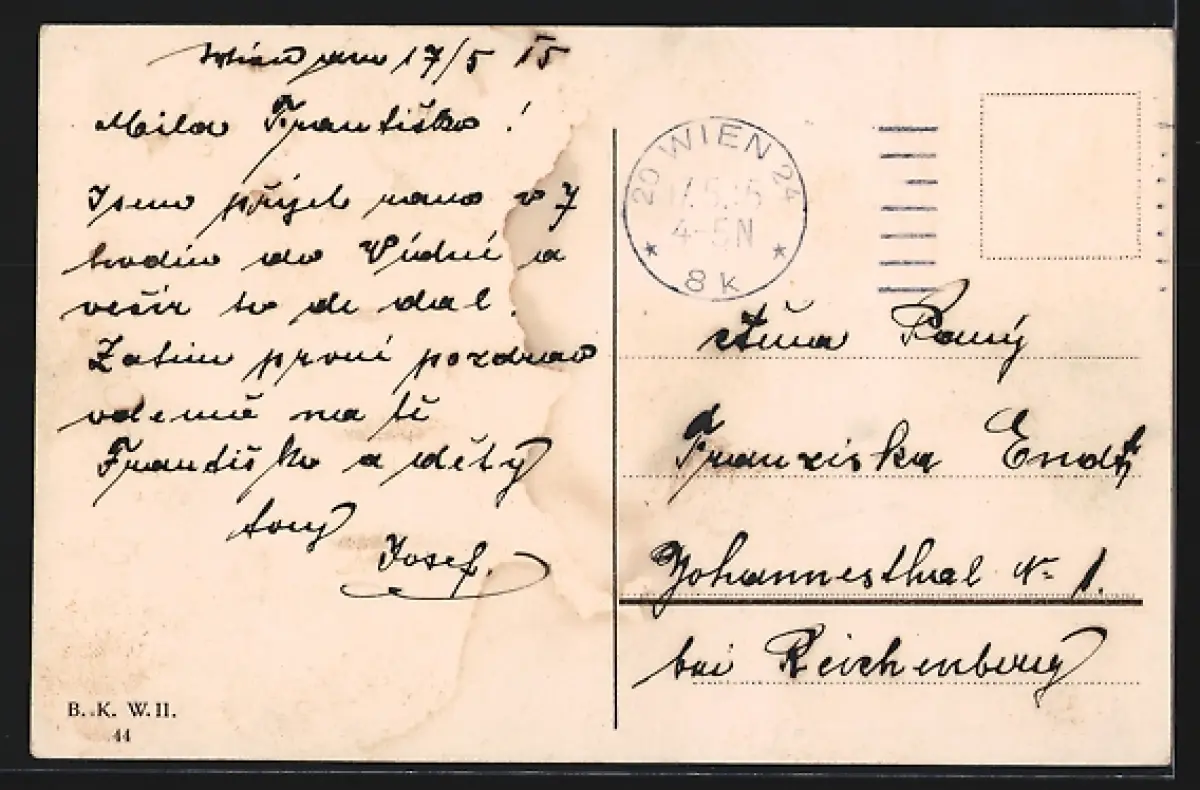 Wien am 17/5 15
Mila Františko!
Jsem přijel rano v 7
hodin do Vidni a
večir to de dal.
Zatim prvni pozdrav
vdemě na tě
Františko a děty
tony
Josef.
B. K. W. II.
44
20 WIEN 24
17.5.15
4-5N
8k
Paný
Franziska Endt
Johannesthal N- 1.
bei Reichenberg